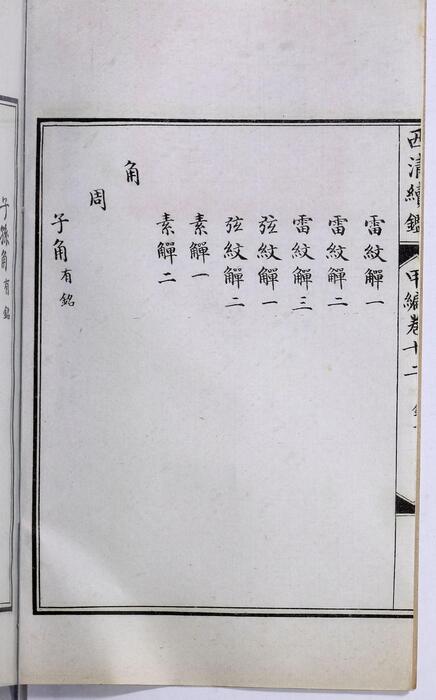 西清續鑑 甲編卷十二
雷紋觶一
雷紋觶二
雷紋觶三
弦紋觶一
弦紋觶二
素觶一
素觶二
角
周
子角有銘
子孫角有銘